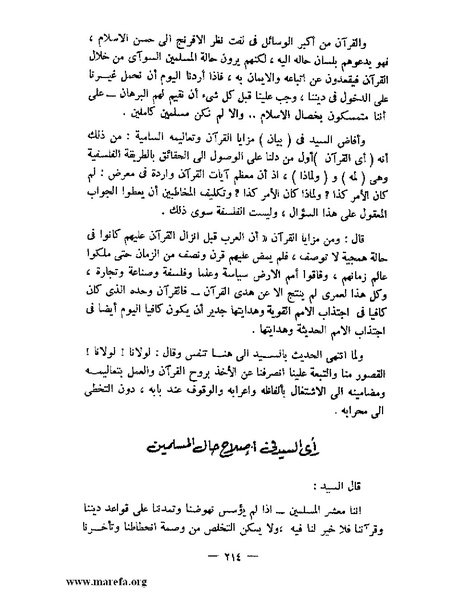 والقرآن من أكبر الوسائل فى لفت نظر الافرنج الى حسن الاسلام ،
فهو يدعوهم بلسان حاله اليه ، لكنهم يرون حالة المسلمين السوآى من خلال
القرآن فيقعدون عن اتباعه والايمان به ، فاذا أردنا اليوم أن نحمل غيرنا
على الدخول فى ديننا ، وجب علينا قبل كل شىء أن نقيم لهم البرهان — على
أننا متمسكون بخصال الاسلام .. والا لم نكن مسلمين كاملين .
وأفاض السيد فى ( بيان ) مزايا القرآن وتعاليمه السامية : من ذلك
أنه ( أى القرآن ) أول من دلنا على الوصول الى الحقائق بالطريقة الفلسفية
وهى ( لمه ) و ( ولماذا ) ، اذ أن معظم آيات القرآن واردة فى معرض : لم
كان الأمر كذا ? ولماذا كان الأمر كذا ? وتكليف المخاطبين أن يعطوا الجواب
المعقول على هذا السؤال ، وليست الفلسفة سوى ذلك .
قال : ومن مزايا القرآن « أن العرب قبل انزال القرآن عليهم كانوا فى
حالة همجية لا توصف ، فلم يمض عليهم قرن ونصف من الزمان حتى ملكوا
عالم زمانهم ، وفاقوا أمم الارض سياسة وعلما وفلسفة وصناعة وتجارة ،
وكل هذا لعمرى لم ينتج الا عن هدى القرآن — فالقرآن وحده الذى كان
كافيا فى اجتذاب الامم القوية وهدايتها جدير أن يكون كافيا اليوم أيضا فى
اجتذاب الامم الحديثة وهدايتها .
ولما انتهى الحديث بالسيد الى هنا تنفس وقال : لولانا ! لولانا !
القصور منا والتبعة علينا انصرفنا عن الأخذ بروح القرآن والعمل بتعاليمه
ومضامينه الى الاشتغال بألفاظه واعرابه والوقوف عند بابه ، دون التخطى
الى محرابه .
رأى السيد فى اصلاح حال المسلمين
قال السيد :
اننا معشر المسلمين — اذا لم يؤسس نهوضنا وتمدننا على قواعد ديننا
وقرآننا فلا خير لنا فيه ، ولا يمكن التخلص من وصمة انحطاطنا وتأخرنا
— ٢١٤ —
www.marefa.org